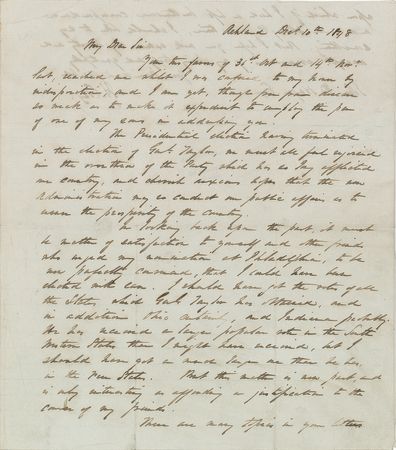 Ashland Dec. 10th 1848
My Dear Sir
Your two favors of 31st Oct and 14th Nov.
last, reached me whilst I was confined to my house by
indisposition; and I am yet, though free from disease
so weak as to make it expedient to employ the pen
of one of my sons in addressing you.
The Presidential election having terminated
in the election of Genl. Taylor, we must all feel rejoiced
in the overthrow of the Party which has so long afflicted
our country, and cherish sanguine hopes that the new
Administration may so conduct our public affairs as to
secure the prosperity of the country.
In looking back upon the past, it must
be matter of satisfaction to yourself and other friends
who urged my nomination at Philadelphia, to be
now perfectly convinced, that I could have been
elected with ease. I should have got the votes of all
the States, which Genl. Taylor has obtained, and
in addition Ohio certainly, and Indiana probably.
He has received a larger popular vote in the South
Western States than I might have received, but I
should have got a much larger one than he has,
in the Free States. But this matter is now past, and
is only interesting as affording a justification to the
course of my friends.
There are many topics in your letters